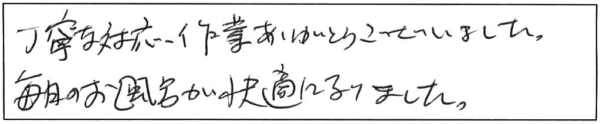 丁寧な対応、作業ありがとうございました。
毎日のお風呂が快適になりました。